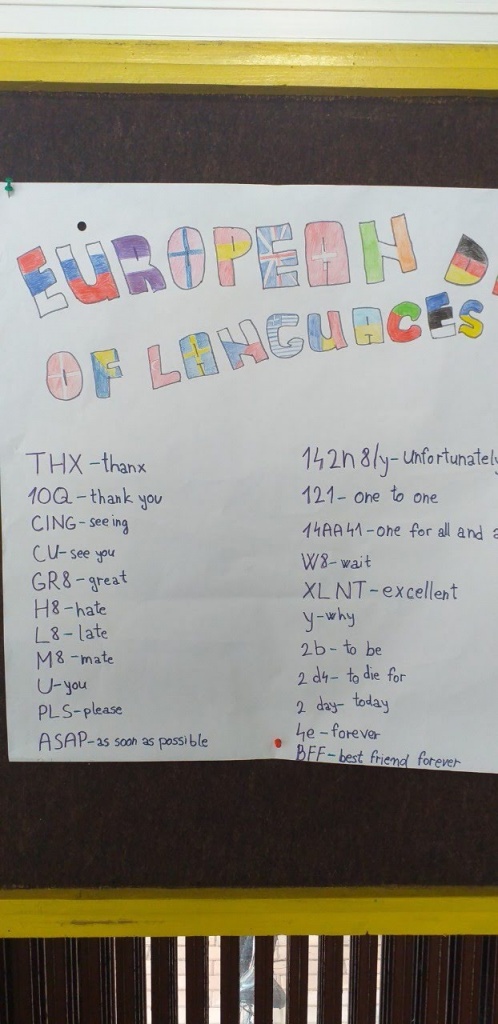 EUROPEAN D
OF LANGUAGES
THX - thanx
10Q - thank you
CING - seeing
CU - see you
GR8 - great
H8 - hate
L8 - late
M8 - mate
U - you
PLS - please
ASAP - as soon as possible
142n8/y - Unfortunately
121 - one to one
14AA41 - one for all and a
W8 - wait
XLNT - excellent
y - why
2b - to be
2d4 - to die for
2 day - today
4e - forever
BFF - best friend forever